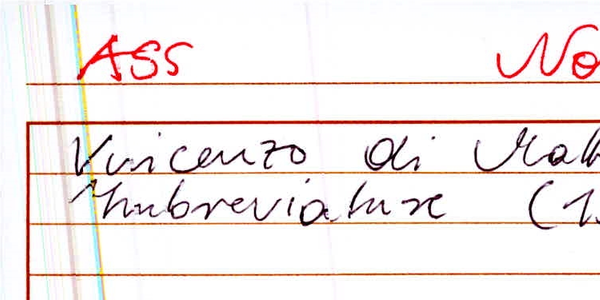 ASS No
Vincenzo di Matt
Imbreviature (1